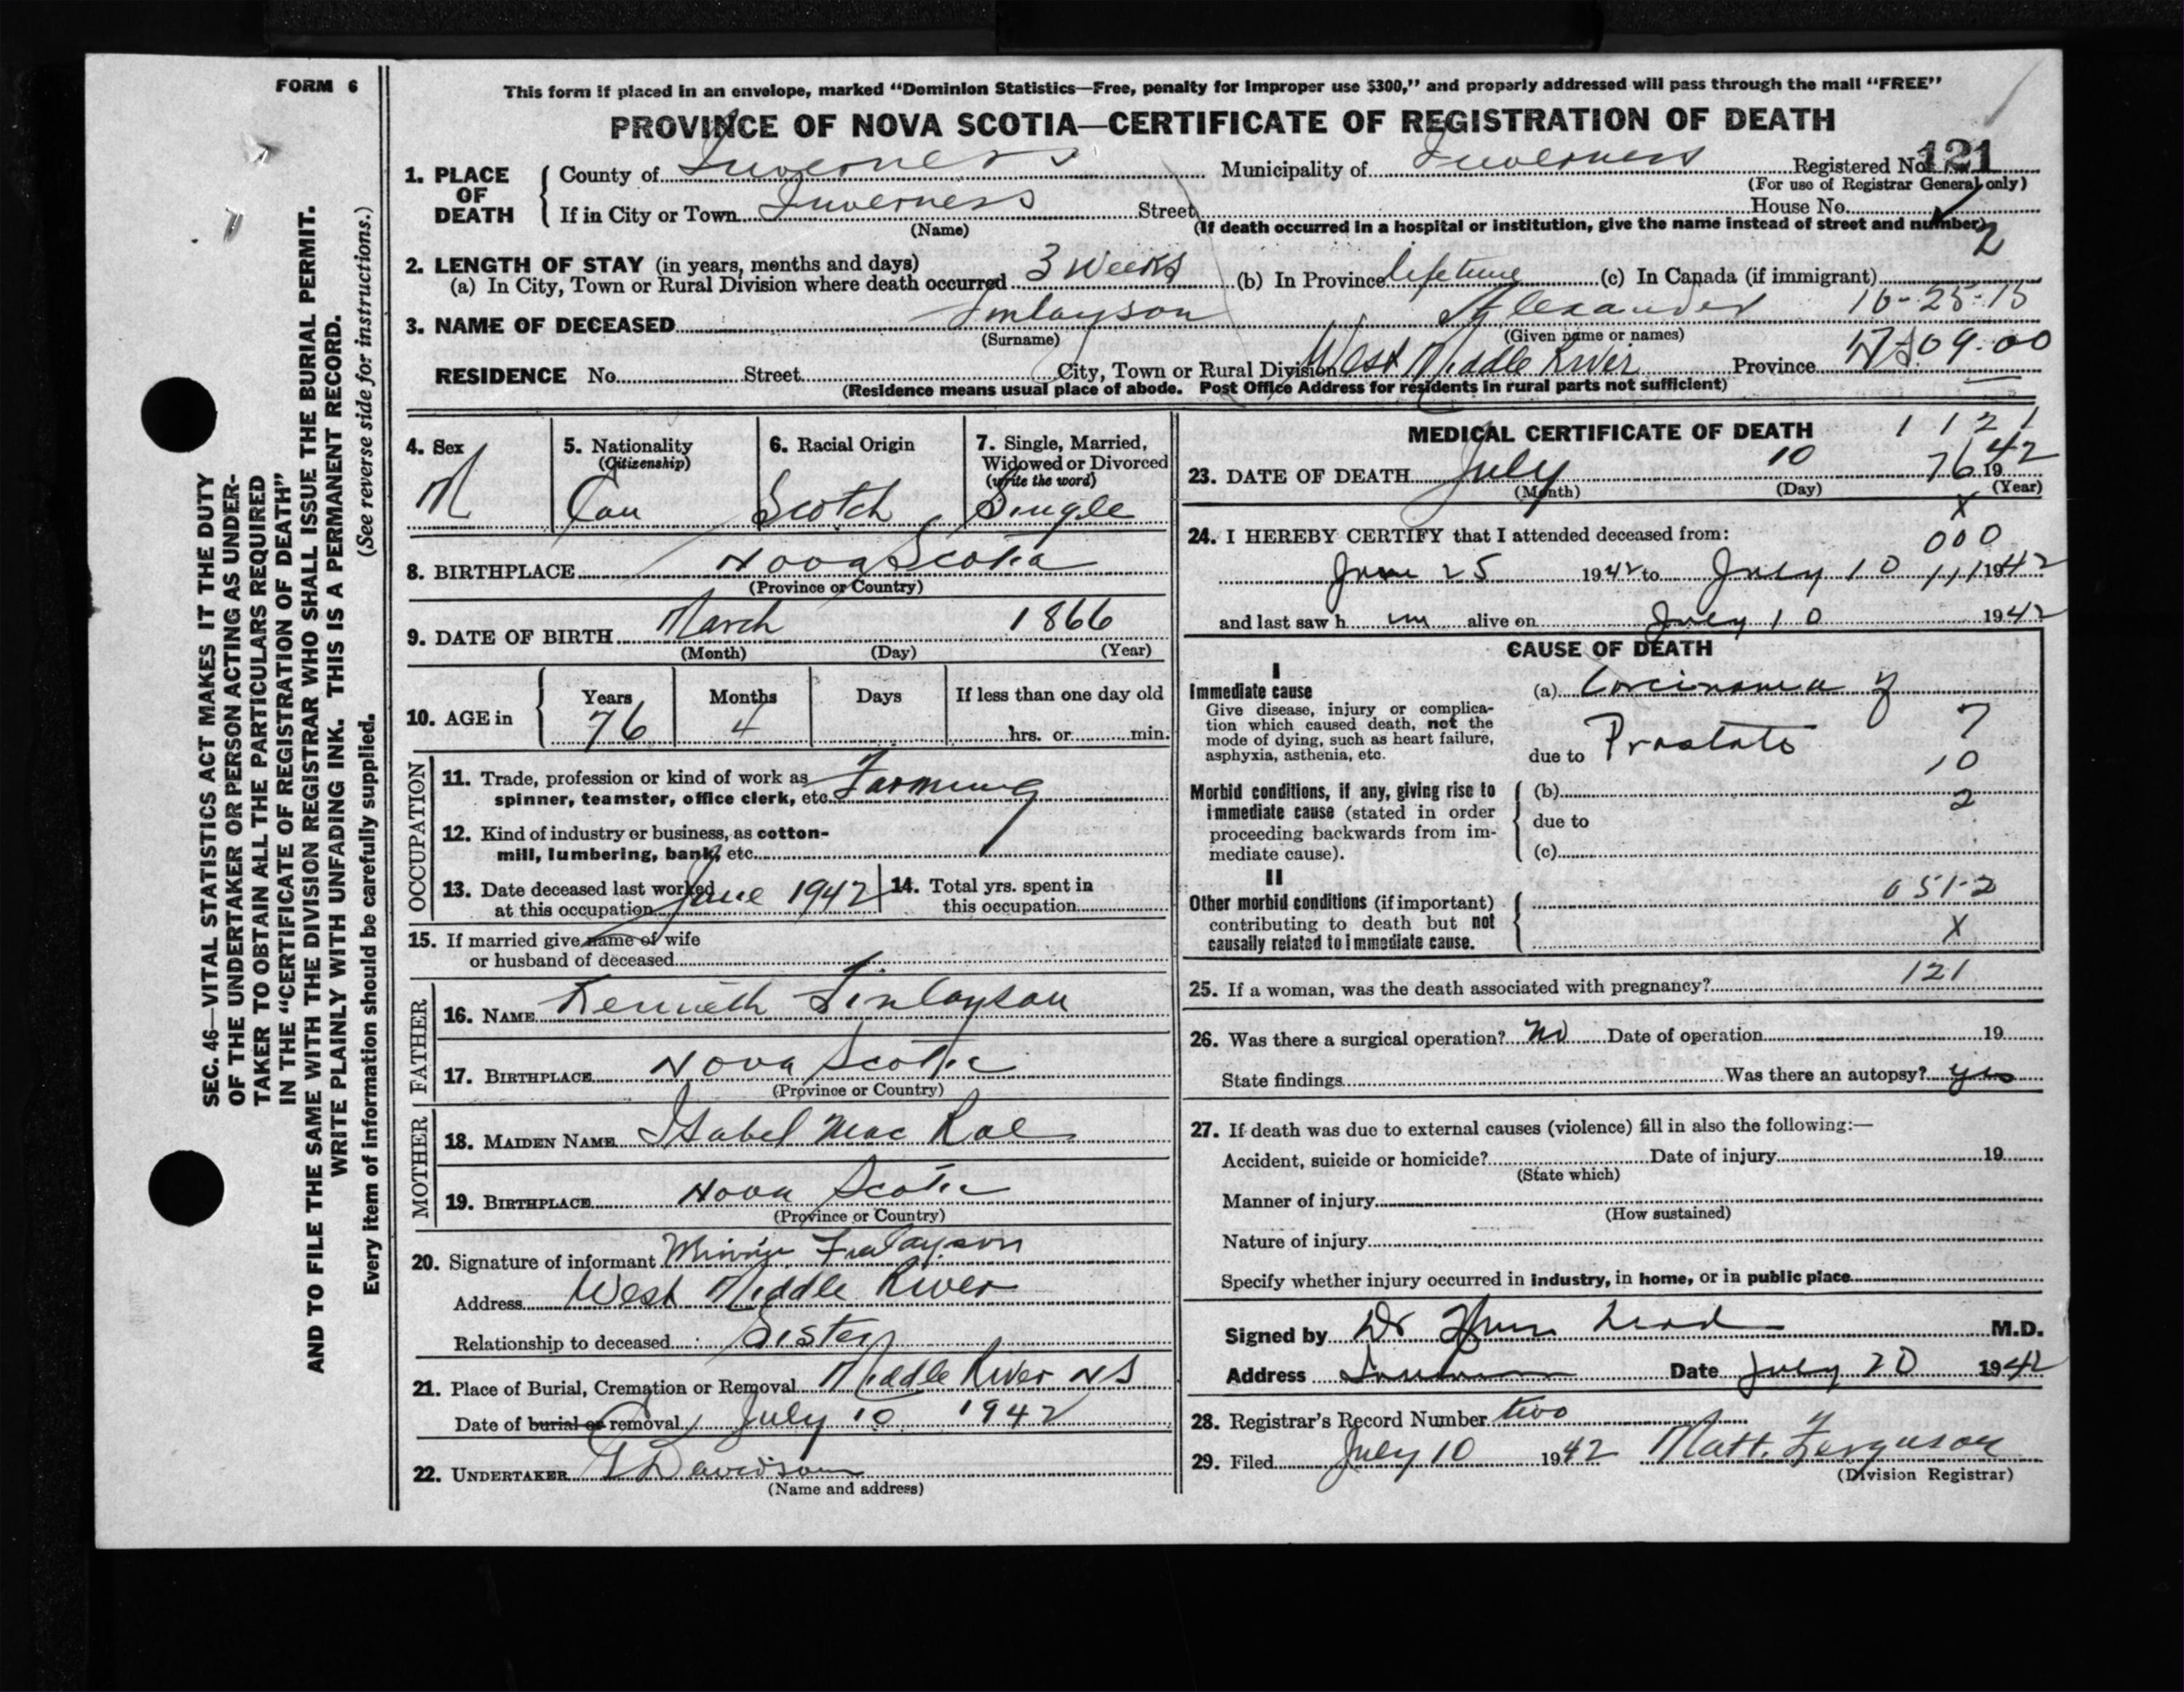 FORM 6
SEC. 46—VITAL STATISTICS ACT MAKES IT THE DUTY
OF THE UNDERTAKER OR PERSON ACTING AS UNDER-
TAKER TO OBTAIN ALL THE PARTICULARS REQUIRED
IN THE "CERTIFICATE OF REGISTRATION OF DEATH"
AND TO FILE THE SAME WITH THE DIVISION REGISTRAR WHO SHALL ISSUE THE BURIAL PERMIT.
WRITE PLAINLY WITH UNFADING INK. THIS IS A PERMANENT RECORD.
Every item of information should be carefully supplied. (See reverse side for instructions.)
This form if placed in an envelope, marked "Dominion Statistics—Free, penalty for improper use $300," and properly addressed will pass through the mail "FREE"
PROVINCE OF NOVA SCOTIA—CERTIFICATE OF REGISTRATION OF DEATH
1. PLACE OF DEATH
County of Inverness Municipality of Inverness Registered No. 121
(For use of Registrar General only)
If in City or Town Inverness Street House No.
(Name) (If death occurred in a hospital or institution, give the name instead of street and number)
2
2. LENGTH OF STAY (in years, months and days)
(a) In City, Town or Rural Division where death occurred 3 Weeks (b) In Province lifetime (c) In Canada (if immigrant)
3. NAME OF DECEASED Finlayson Alexander 10-25-15
(Surname) (Given name or names)
RESIDENCE No. Street City, Town or Rural Division West Middle River Province N S 09-00
(Residence means usual place of abode. Post Office Address for residents in rural parts not sufficient)
4. Sex M
5. Nationality (Citizenship) Can
6. Racial Origin Scotch
7. Single, Married, Widowed or Divorced (write the word) Single
8. BIRTHPLACE Nova Scotia
(Province or Country)
9. DATE OF BIRTH March 1866
(Month) (Day) (Year)
10. AGE in Years 76 Months 4 Days If less than one day old hrs. or min.
OCCUPATION
11. Trade, profession or kind of work as spinner, teamster, office clerk, etc. Farming
12. Kind of industry or business, as cotton-
mill, lumbering, bank, etc.
13. Date deceased last worked at this occupation June 1942
14. Total yrs. spent in this occupation
15. If married give name of wife
or husband of deceased
FATHER
16. NAME Kenneth Finlayson
17. BIRTHPLACE Nova Scotia
(Province or Country)
MOTHER
18. MAIDEN NAME Isabel Mac Rae
19. BIRTHPLACE Nova Scotia
(Province or Country)
20. Signature of informant Minnie Finlayson
Address West Middle River
Relationship to deceased Sister
21. Place of Burial, Cremation or Removal Middle River N S
Date of burial or removal July 10 1942
22. UNDERTAKER Davidson
(Name and address)
MEDICAL CERTIFICATE OF DEATH 1 1 2 1
23. DATE OF DEATH July 10 76 1942
(Month) (Day) (Year)
X
24. I HEREBY CERTIFY that I attended deceased from: 000
June 25 1942 to July 10 111 1942
and last saw h im alive on July 10 1942
CAUSE OF DEATH
I
Immediate cause
Give disease, injury or complica-
tion which caused death, not the
mode of dying, such as heart failure,
asphyxia, asthenia, etc.
(a) Carcinoma of
due to Prostate
7
10
2
Morbid conditions, if any, giving rise to
immediate cause (stated in order
proceeding backwards from im-
mediate cause).
(b)
due to
(c)
II
Other morbid conditions (if important)
contributing to death but not
causally related to immediate cause.
051-2
X
121
25. If a woman, was the death associated with pregnancy?
26. Was there a surgical operation? No Date of operation 19
State findings Was there an autopsy? yes
27. If death was due to external causes (violence) fill in also the following:—
Accident, suicide or homicide? Date of injury 19
(State which)
Manner of injury
(How sustained)
Nature of injury
Specify whether injury occurred in industry, in home, or in public place
Signed by Dr M.D.
Address Date July 20 1942
28. Registrar's Record Number two
29. Filed July 10 1942 Matt. F Ferguson
(Division Registrar)